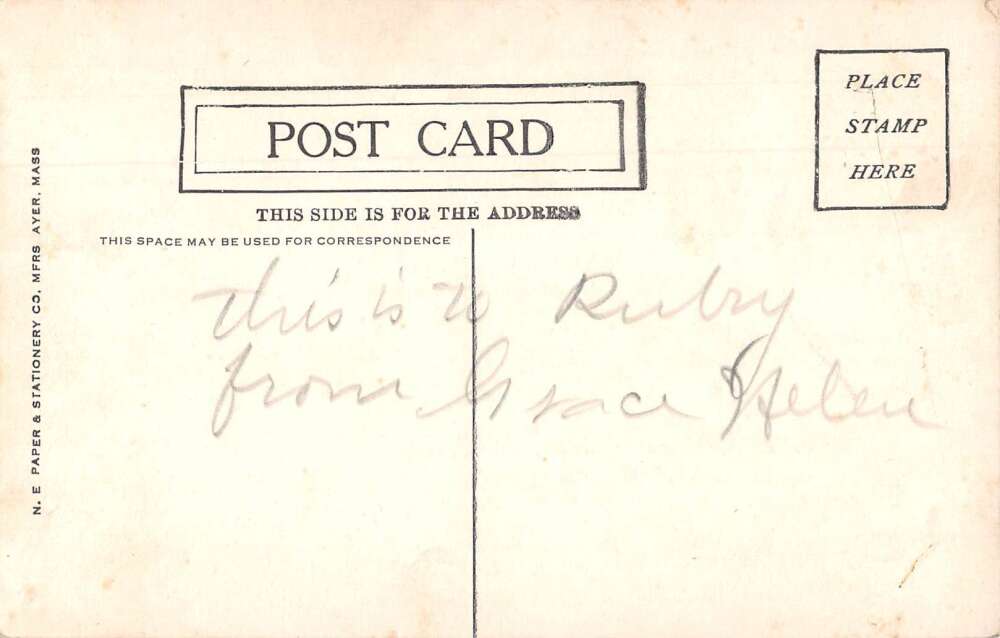 POST CARD
PLACE
STAMP
HERE
THIS SIDE IS FOR THE ADDRESS
THIS SPACE MAY BE USED FOR CORRESPONDENCE
this is to Ruby
from Grace Helen
N. E PAPER & STATIONERY CO. MFRS AYER. MASS